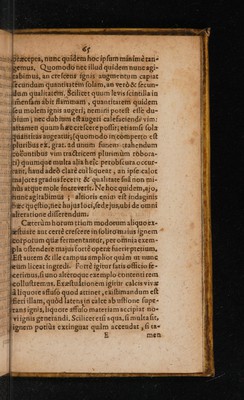 65
præcepta, nunc quidem hoc ipsum minime tan-
gemus. Quomodo nec illud quidem nunc agi-
tabimus, an crescens ignis augmentum capiat
secundum quantitatem solam, an verò & secun-
dum qualitatem. Scilicet quum levis scintilla in
immensam abit flammam, quantitatem quidem
seu molem ignis augeri, nemini potest esse du-
bium; nec dubium est augeri calefaciendi vim:
attamen quum hæc crescere possit, etiamsi sola
quantitas augeatur, (quomodo in compertis est
pluribus ex. grat. ad unum funem trahendum
coeuntibus vim tractricem plurimûm robora-
ri) quumque multa alia hîc perobscura occur-
rant, haud adeò clarè colliquent, an ipse calor
majores gradus fecerit & qualitate suâ non mi-
nùs atque mole increverit. Ne hoc quidem, ajo,
nunc agitabimus; altioris enim est indaginis
hæc quæstio, nec hujus loci, sed ejus, ubi de omni
alteratione disserendum.
Cæterùm horum trium modorum aliquo ex-
æstuare aut certè crescere in solito majus ignem
corporum quæ fermentantur, per omnia exem-
pla ostendere majus fortè opere fuerit pretium.
Est autem & ille campus amplior quàm ut nunc
eum liceat ingredi. Fortè igitur satis officio fe-
cerimus, si uno alteroque exemplo contenti rem
collustremus. Exæstuationem igitur calcis vivæ
à liquore affuso quod attinet, existimandum est
fieri illam, quòd latens in calce ab ustione supe-
rans ignis, liquore affuso materiam accipiat no-
vi ignis generandi. Scilicet etsi aqua, si multa sit,
ignem potiùs extinguat quàm accendat, si ta-
E
men